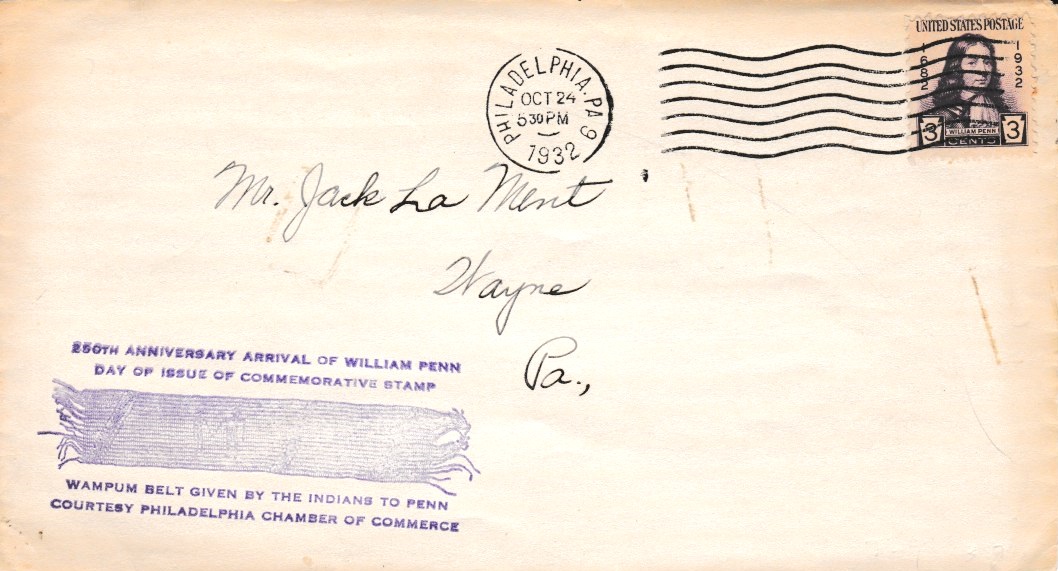 UNITED STATES POSTAGE
1682
1932
3
WILLIAM PENN
3
CENTS
PHILADELPHIA. PA 9
OCT 24
5 30 PM
1932
Mr. Jack La Ment
Wayne
Pa.,
250TH ANNIVERSARY ARRIVAL OF WILLIAM PENN
DAY OF ISSUE OF COMMEMORATIVE STAMP
WAMPUM BELT GIVEN BY THE INDIANS TO PENN
COURTESY PHILADELPHIA CHAMBER OF COMMERCE